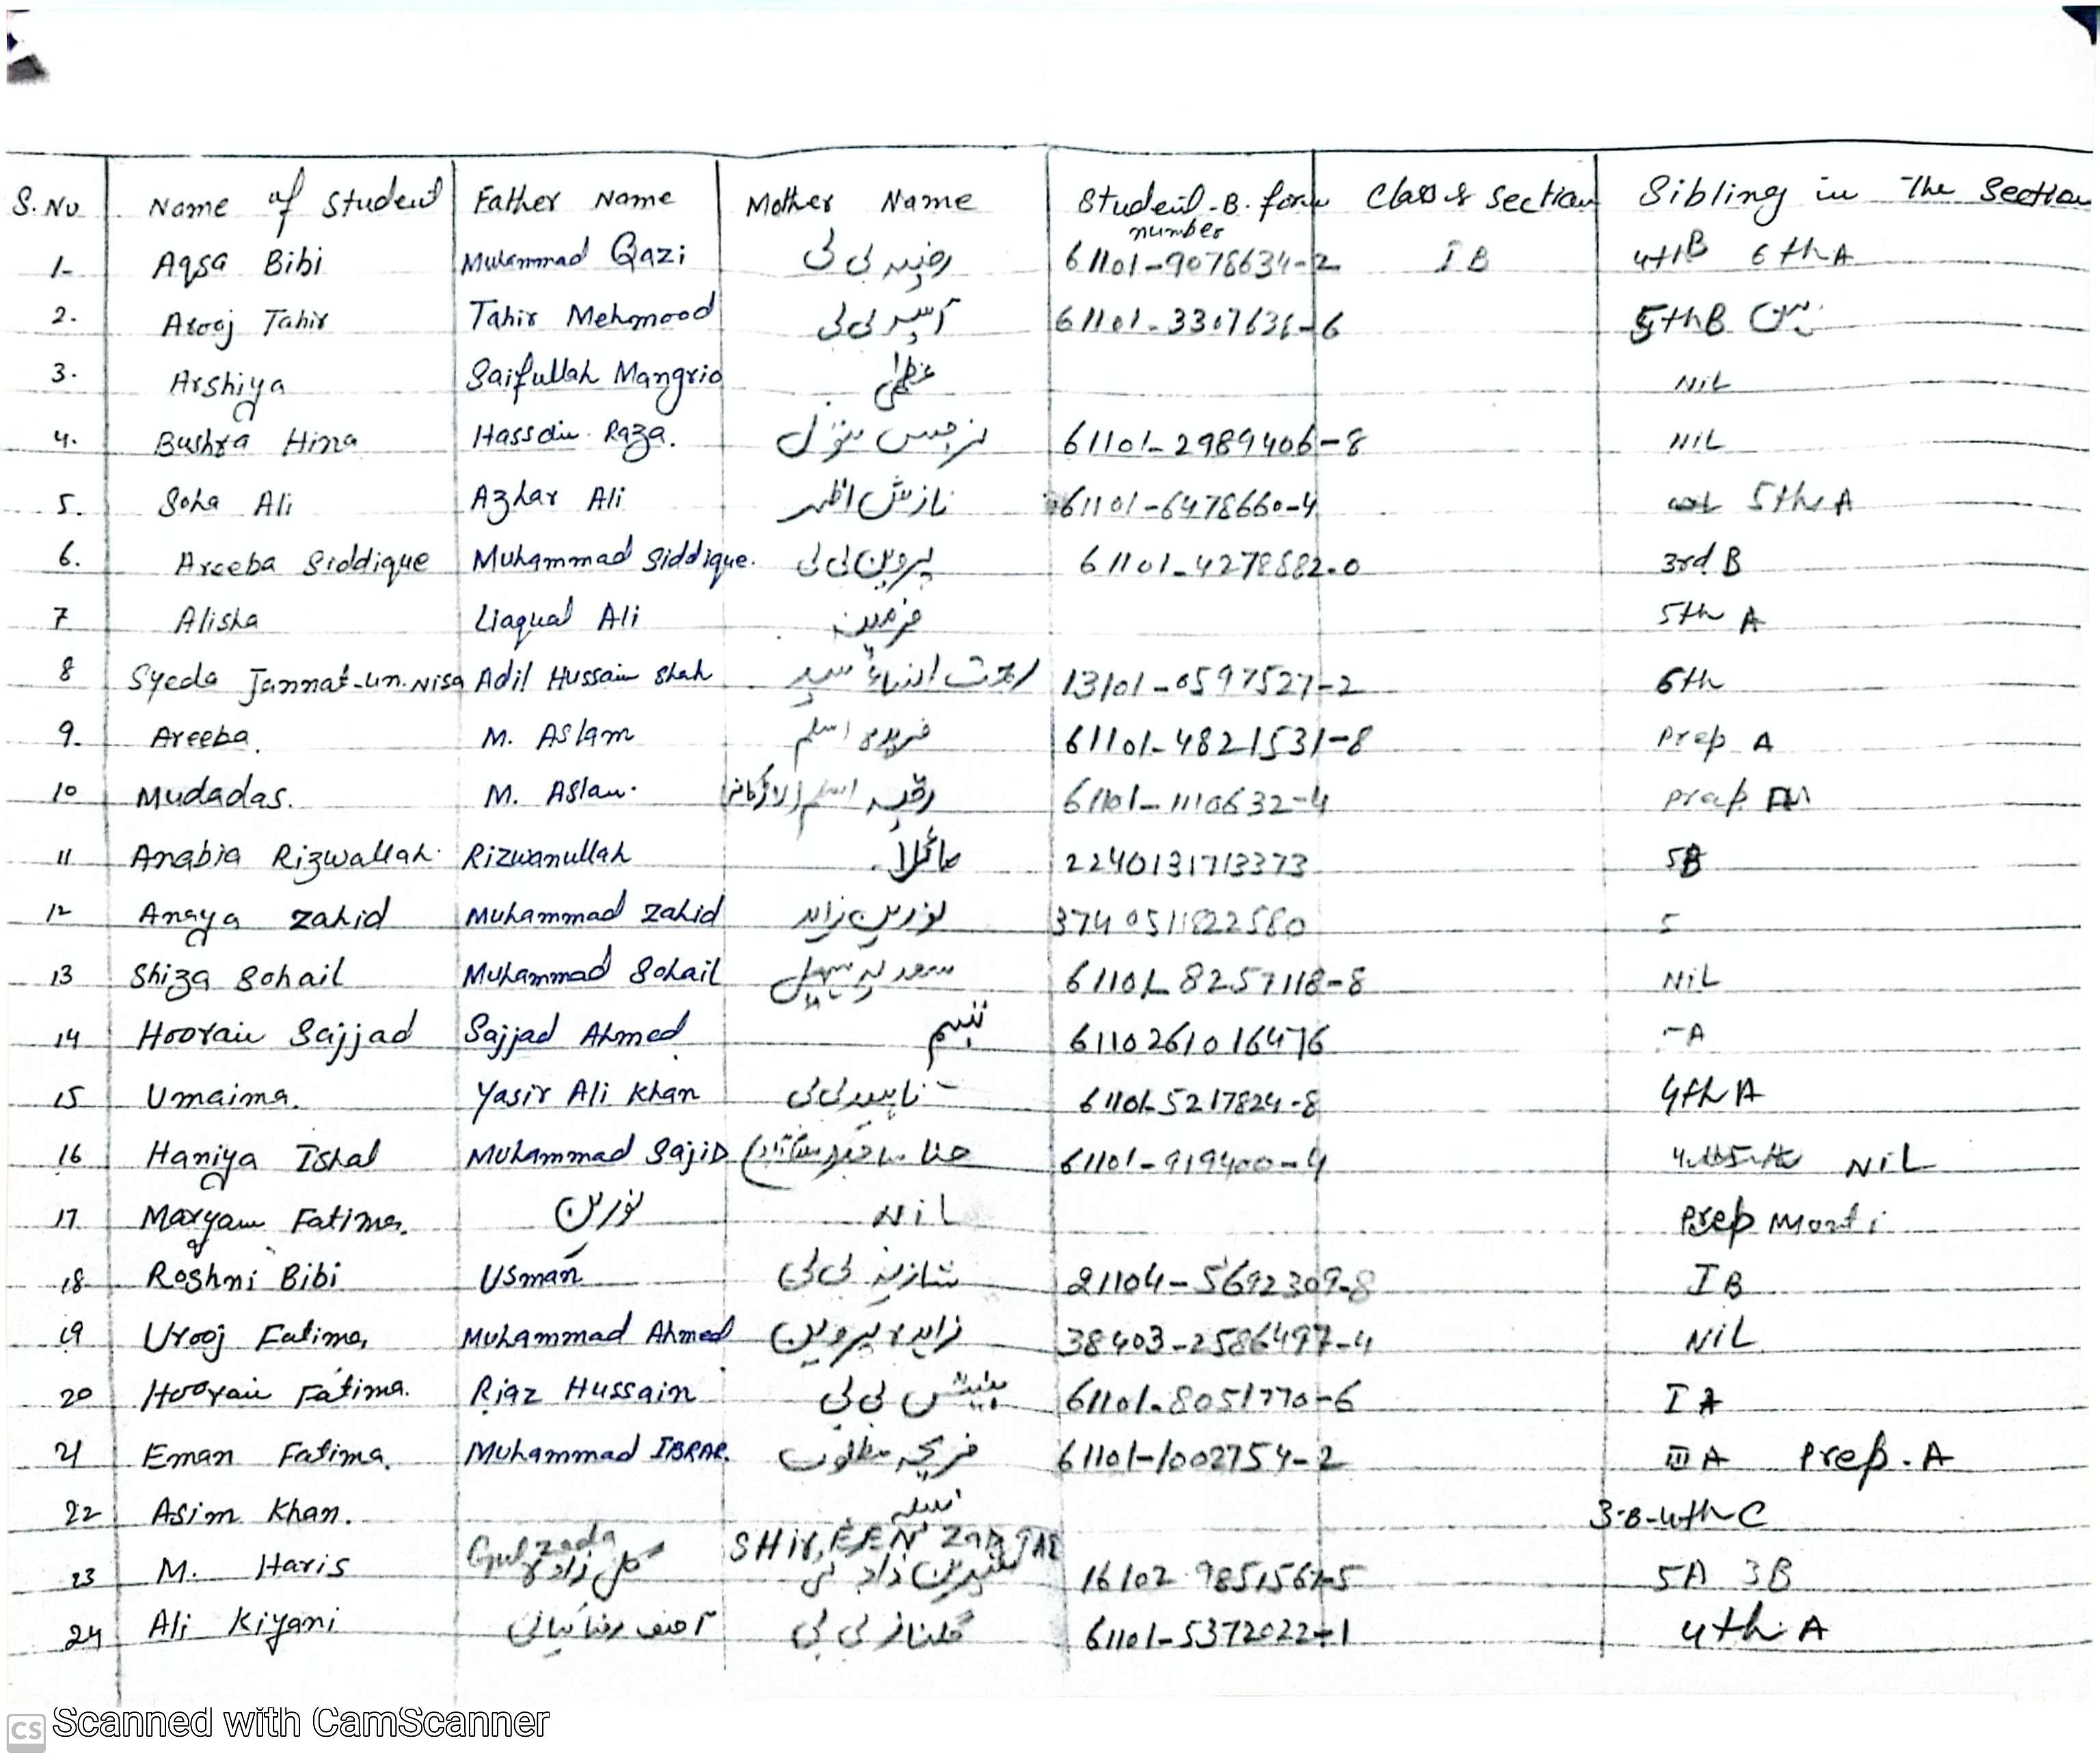 S.No Name of Student Father Name Mother Name Student B. form number Class & Section Sibling in The Section
1- Aqsa Bibi Muhammad Qazi رضیہ بی بی 61101-9078634-2 I B 4thB 6thA
2. Arooj Tahir Tahir Mehmood آسیہ بی بی 61101-3307636-6 5thB
3. Arshiya Saifullah Mangrio عظمیٰ Nil
4. Bushra Hina Hassain Raza. نرجس بتول 61101-2989406-8 Nil
5. Soha Ali Azhar Ali نازش اظہر 61101-6478660-4 5th A
6. Areeba Siddique Muhammad Siddique. پروین بی بی 61101-4278582-0 3rd B
7 Alisha Liaquat Ali 5th A
8 Syeda Jannat-un-Nisa Adil Hussain Shah 13101-0597527-2 6th
9. Areeba. M. Aslam فریدہ اسلم 61101-4821531-8 Prep A
10 Mudadas. M. Aslam. رقیہ اسلم 61101-1110632-4 Prep
11 Anabia Rizwallah. Rizwanullah مائلا 2240131713373 5B
12 Anaya Zahid Muhammad Zahid نورین زاہد 3740511822580 5
13 Shiza Sohail Muhammad Sohail سعدیہ سہیل 61101-8257118-8 NiL
14 Hoorain Sajjad Sajjad Ahmed 6110261016476 -A
15 Umaima. Yasir Ali Khan ناہید بی بی 61101-5217824-8 4th A
16 Haniya Ishal Muhammad Sajid حنا ساجد 61101-919400-4 NiL
17 Maryam Fatima. نورین Nil Prep Monti
18 Roshni Bibi Usman شازیہ بی بی 21104-5692309-8 I B
19 Urooj Fatima Muhammad Ahmed زاہدہ پروین 38403-2586497-4 NiL
20 Hoorain Fatima. Riaz Hussain بینش بی بی 61101-8051770-6 I A
21 Eman Fatima. Muhammad IBRAR. فریحہ مطلوب 61101-1002754-2 III A Prep. A
22 Asim Khan. 3-B-4th C
23 M. Haris Gulzada گل زادہ SHIREEN شیرین 16102 9851561-5 5A 3B
24 Ali Kiyani آصف رضا کیانی گلناز بی بی 61101-5372022-1 4th A
CS Scanned with CamScanner